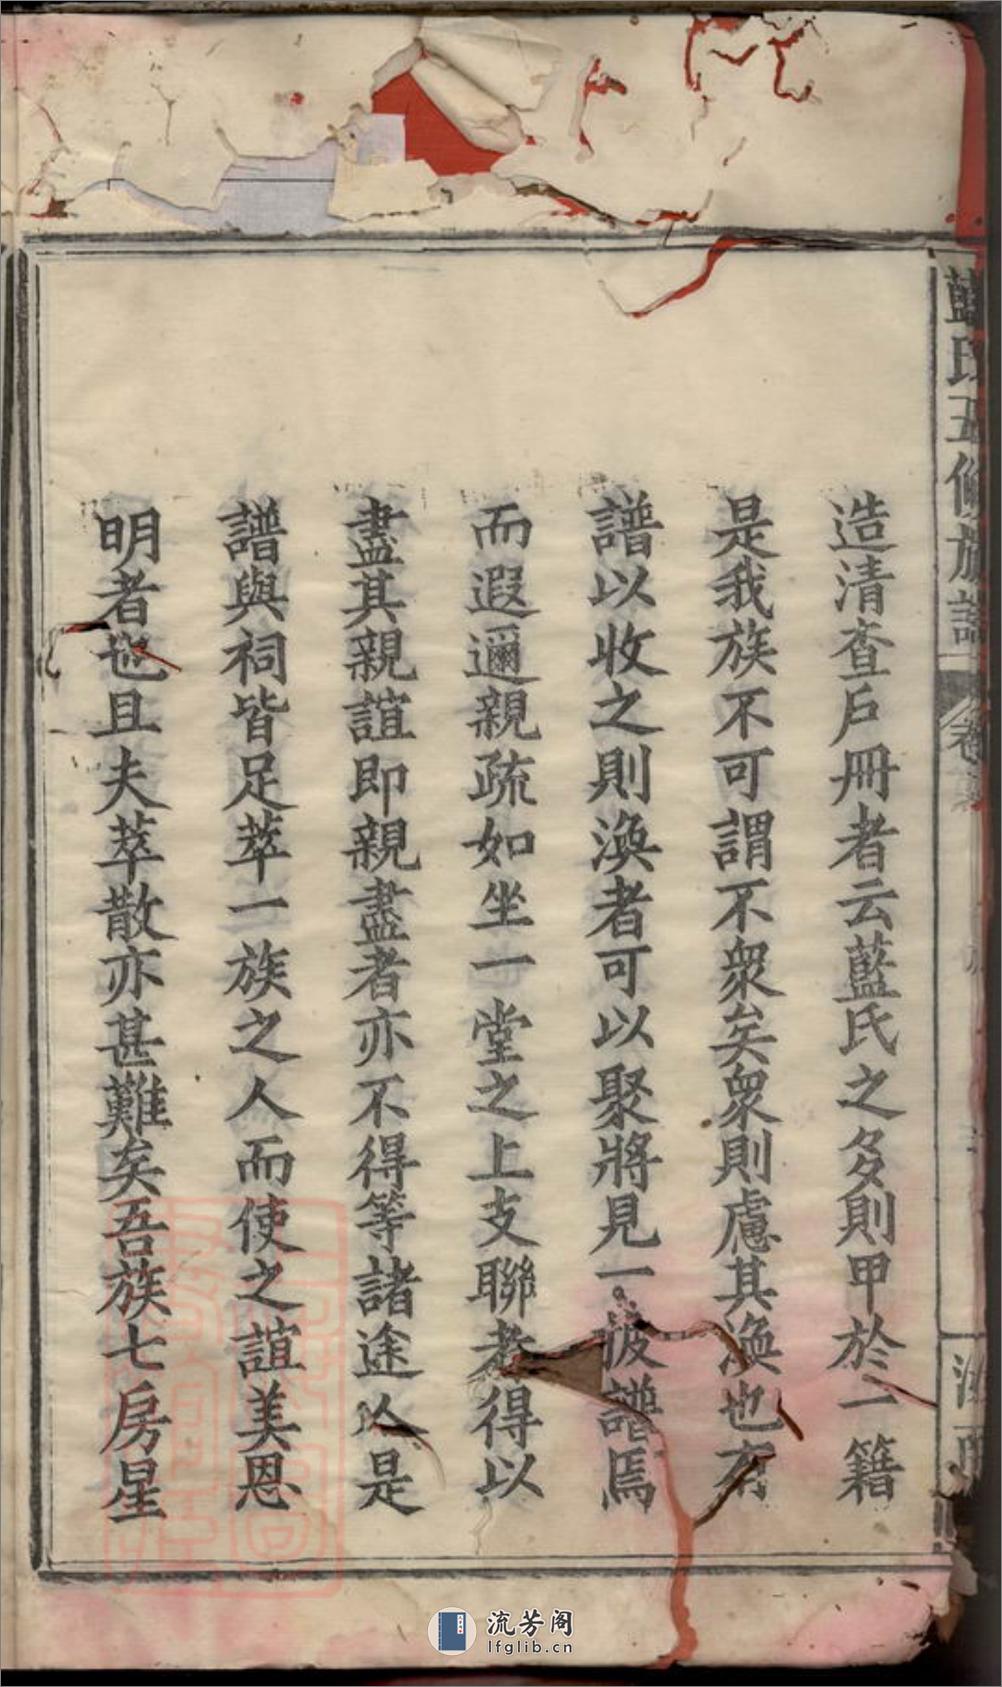 藍氏五修族譜
造清查戶冊者云藍氏之多則甲於一籍
是我族不可謂不衆矣衆則慮其渙也有
譜以收之則渙者可以聚將見一披譜焉
而遐邇親疏如坐一堂之上支聯者得以
盡其親誼即親盡者亦不得等諸途人是
譜與祠皆足萃一族之人而使之誼美恩
明者也且夫萃散亦甚難矣吾族七房星
流芳阁
lfglib.cn